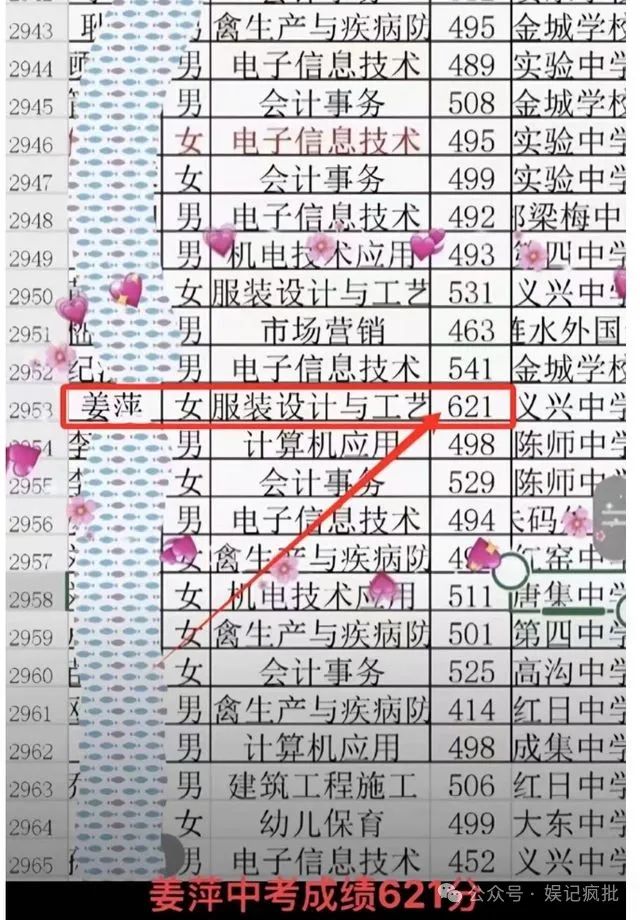 2943 男 禽生产与疾病防 495 金城学校
2944 男 电子信息技术 489 实验中学
2945 男 会计事务 508 金城学校
2946 女 电子信息技术 495 实验中学
2947 女 会计事务 499 实验中学
2948 男 电子信息技术 492 郑梁梅中
2949 男 机电技术应用 493 第四中学
2950 女 服装设计与工艺 531 义兴中学
2951 男 市场营销 463 涟水外国
2952 纪 男 电子信息技术 541 金城学校
2953 姜萍 女 服装设计与工艺 621 义兴中学
2954 李 男 计算机应用 498 陈师中学
2955 李 女 会计事务 529 陈师中学
2956 男 电子信息技术 494 朱码
2957 女 禽生产与疾病防 红窑中学
2958 女 机电技术应用 511 唐集中学
2959 女 禽生产与疾病防 501 第四中学
2960 女 会计事务 525 高沟中学
2961 男 禽生产与疾病防 414 红日中学
2962 男 计算机应用 498 成集中学
2963 男 建筑工程施工 506 红日中学
2964 女 幼儿保育 499 大东中学
2965 男 电子信息技术 452 义兴中学
姜萍中考成绩621分
公众号·娱记疯批